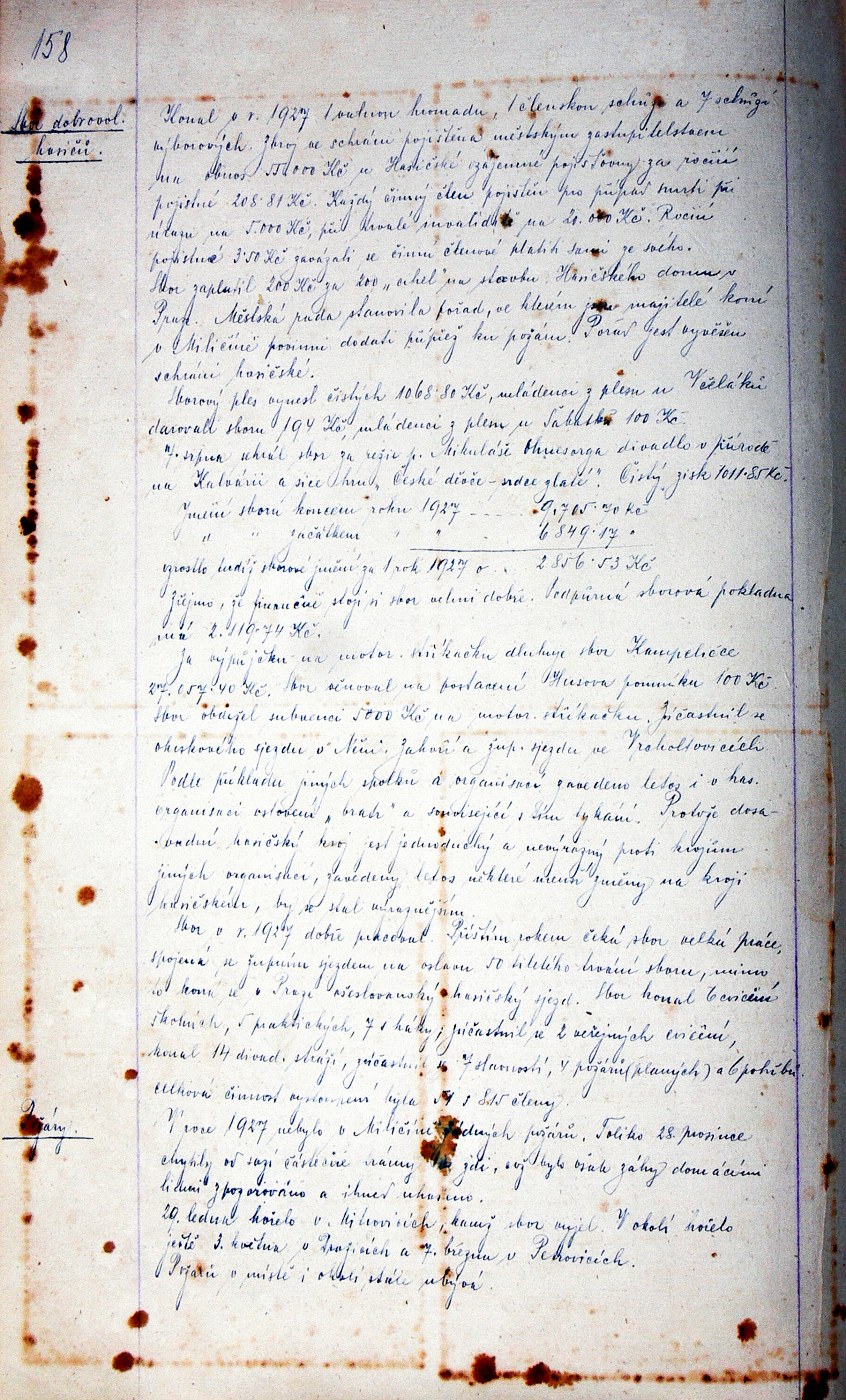 158
Sbor dobrovol.
hasičů.
Konal v r. 1927 1 valnou hromadu, 1 členskou schůzi a 7 schůzí
výborových. Zbroj ve schrání pojištěna městským zastupitelstvem
na obnos 55.000 Kč u Hasičské vzájemné pojišťovny za roční
pojistné 208·81 Kč. Každý činný člen pojištěn pro případ smrti při
úrazu na 5.000 Kč, při trvalé invaliditě na 20.000 Kč. Roční
pojistné 3·50 Kč zavázali se činní členové platiti sami ze svého.
Sbor zaplatil 200 Kč za 200 „cihel" na stavbu Hasičského domu v
Praze. Městská rada stanovila pořad, ve kterém jsou majitelé koní
v Miličíně povinni dodati přípřež ku požáru. Pořad jest vyvěšen
schrání hasičské.
Sborový ples vynesl čistých 1068·80 Kč, mládenci z plesu u Včeláků
darovali sboru 194 Kč, mládenci z plesu u Šabatků 100 Kč.
7. srpna sehrál sbor za režie p. Mikuláše Ohnesorga divadlo v přírodě
na Kalvárii a sice hru „České děvče – srdce zlaté". Čistý zisk 1011·85 Kč.
Jmění sboru koncem roku 1927 .... 9.705·70 Kč
" " začátkem " " . 6849·17 "
vzrostlo tudíž sborové jmění za 1 rok 1927 o .. 2856·53 Kč
Zřejmo, že finančně stojí si sbor velmi dobře. Podpůrná sborová pokladna
má 2.119·74 Kč.
Za výpůjčku na motor. stříkačku dluhuje sbor Kampeličce
27.057·40 Kč. Sbor věnoval na postavení Husova pomníku 100 Kč.
Sbor obdržel subvenci 5000 Kč na motor. stříkačku. Zúčastnil se
okrskového sjezdu v Něm. Zahoří a žup. sjezdu ve Vrcholtovicích.
Podle příkladu jiných spolků a organisací zavedeno letos i v has.
organisaci oslovení „bratr" a související s tím tykání. Protože dosa-
vadní hasičský kroj jest jednoduchý a nevýrazný proti krojům
jiných organisací, zavedeny letos některé menší změny na kroji
hasičském, by se stal výraznějším.
Sbor v r. 1927 dobře pracoval. Příštím rokem čeká sbor velká práce,
spojená se župním sjezdem na oslavu 50 tiletého trvání sboru, mimo
to koná se v Praze všeslovanský hasičský sjezd. Sbor konal 6 cvičení
školních, 5 praktických, 7 s háky, zúčastnil se 2 veřejných cvičení,
konal 14 divad. stráží, zúčastnil se 7 slavností, 4 požárů (planých) a 6 pohřbů.
Celková činnost vystoupení byla 51 s 815 členy.
Požáry.
V roce 1927 nebylo v Miličíně žádných požárů. Toliko 28. prosince
chytily od sazí částečně trámy zdi, což bylo však záhy domácími
lidmi zpozorováno a ihned uhaseno.
29. ledna hořelo v Mitrovicích, kamž sbor vyjel. V okolí hořelo
ještě 3. května v Dražicích a 7. března v Petrovicích.
Požárů v místě i okolí stále ubývá.